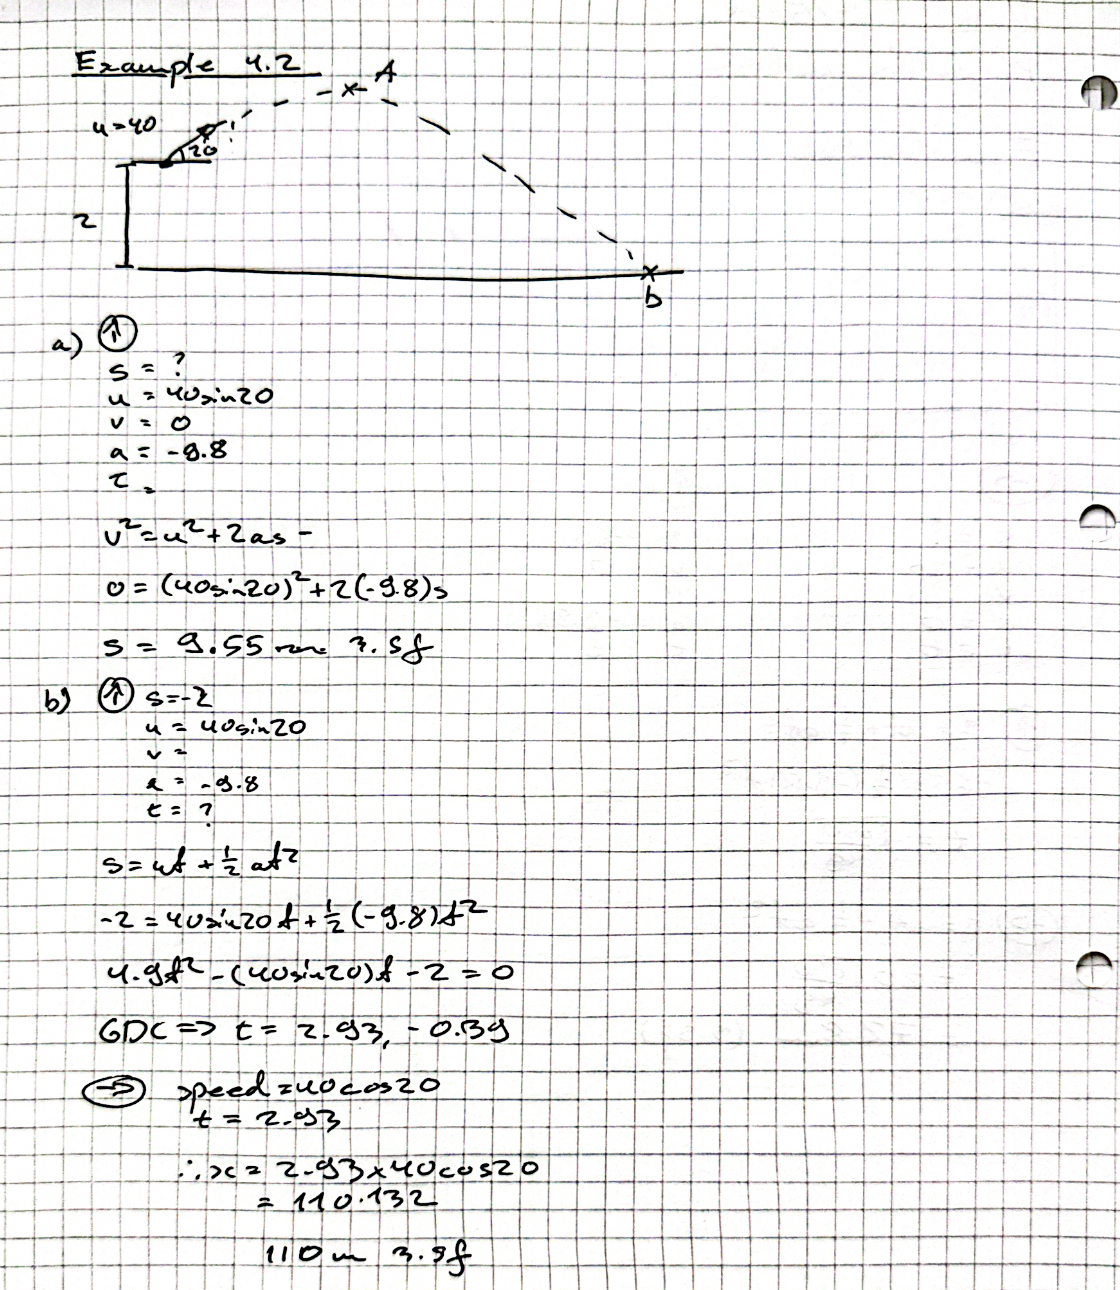 Example 4.2
A
u=40
20
2
b
a) ↑
s = ?
u = 40sin20
v = 0
a = -9.8
t =
v²=u²+2as -
0 = (40sin20)²+2(-9.8)s
s = 9.55 3.sf
b) ↑ s=-2
u = 40sin20
v =
a = -9.8
t = ?
s=ut + ½ at²
-2 = 40sin20t + ½(-9.8)t²
4.9t² - (40sin20)t - 2 = 0
GDC => t = 2.93, -0.139
→ speed = 40cos20
t = 2.93
∴ x = 2.93x40cos20
= 110.132
110m 3.sf